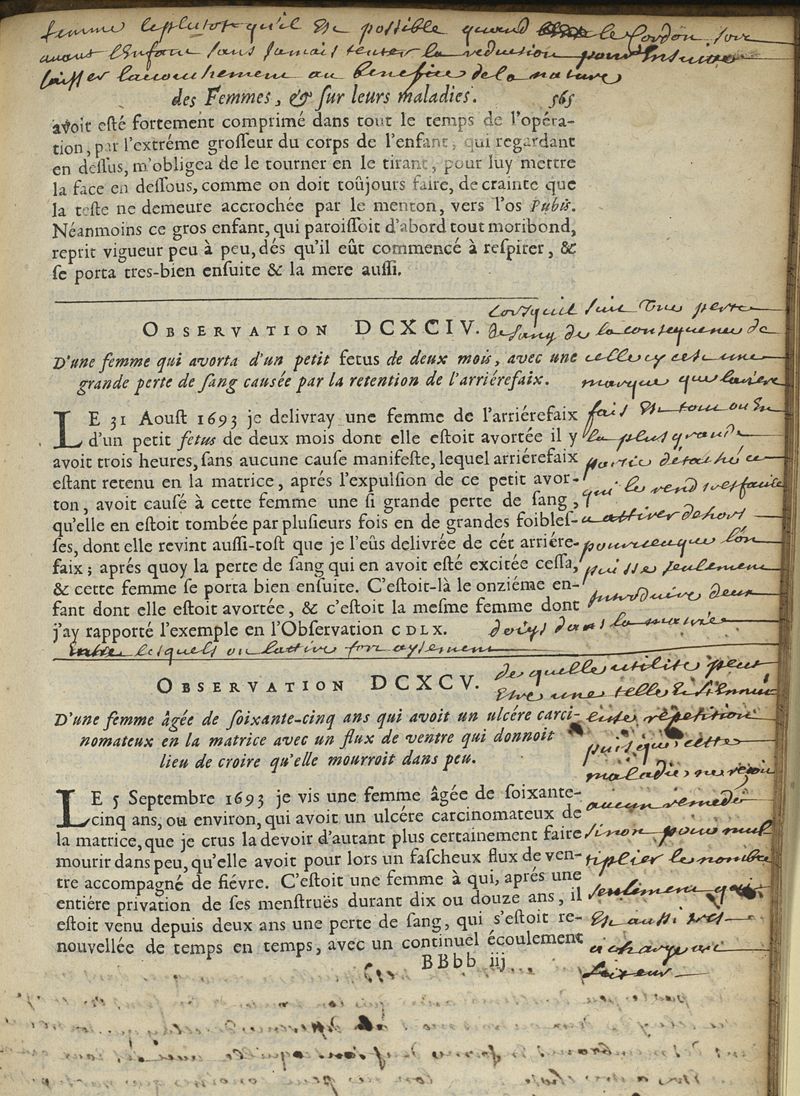 femme leplutost qu'il Est possible quand le Cordon sort
avant l'Enfant sans Jamais tenter la reduction pour Ensuite
laisser lacouchement au benefice de la nature
des Femmes, & ſur leurs maladies. 565
avoit eſté fortement comprimé dans tout le temps de l'opéra-
tion, par l'extréme groſſeur du corps de l'enfant, qui regardant
en deſſus, m'obligea de le tourner en le tirant, pour luy mettre
la face en deſſous, comme on doit toûjours faire, de crainte que
la teſte ne demeure accrochée par le menton, vers l'os Pubis.
Néanmoins ce gros enfant, qui paroiſſoit d'abord tout moribond,
reprit vigueur peu à peu, dés qu'il eût commencé à reſpirer, &
ſe porta tres-bien enſuite & la mere auſſi.
OBSERVATION DCXCIV.
D'une femme qui avorta d'un petit fetus de deux mois, avec une
grande perte de ſang cauſée par la retention de l'arriérefaix.
LE 31 Aouſt 1693 je delivray une femme de l'arriérefaix
d'un petit fetus de deux mois dont elle eſtoit avortée il y
avoit trois heures, ſans aucune cauſe manifeſte, lequel arriérefaix
eſtant retenu en la matrice, aprés l'expulſion de ce petit avor-
ton, avoit cauſé à cette femme une ſi grande perte de ſang,
qu'elle en eſtoit tombée par pluſieurs fois en de grandes foibleſ-
ſes, dont elle revint auſſi-toſt que je l'eûs delivrée de cét arriére-
faix; aprés quoy la perte de ſang qui en avoit eſté excitée ceſſa,
& cette femme ſe porta bien enſuite. C'eſtoit-là le onziéme en-
fant dont elle eſtoit avortée, & c'eſtoit la meſme femme dont
j'ay rapporté l'exemple en l'Obſervation CDLX.
Lorsquil suit Une perte
de sang de la consequence de
celle cy cest une
marque que lariere
fais Est tout ou En
la plus grande
partie détachée ce
qui le rend tres facile
a attirer dehors
pourveu que lon
puisse seulement
Introduire deux
doigs dans la matrice
Entre lesquels on lattire fort aysement
OBSERVATION DCXCV.
D'une femme âgée de ſoixante-cinq ans qui avoit un ulcére carci-
nomateux en la matrice avec un flux de ventre qui donnoit
lieu de croire qu'elle mourroit dans peu.
LE 5 Septembre 1693 je vis une femme âgée de ſoixante-
cinq ans, ou environ, qui avoit un ulcére carcinomateux de
la matrice, que je crus la devoir d'autant plus certainement faire
mourir dans peu, qu'elle avoit pour lors un faſcheux flux de ven-
tre accompagné de fiévre. C'eſtoit une femme à qui, aprés une
entiére privation de ſes menſtruës durant dix ou douze ans, il
eſtoit venu depuis deux ans une perte de ſang, qui s'eſtoit re-
nouvellée de temps en temps, avec un continuel écoulement
BBbb iij
de quelle utilite peut
Etre une telle Et si Ennui
euse répetition
puisque cette
maladie ne reçoit
aucun remede
sinon pour mul
tiplier le nombre
seulement qui
Est aussi tres
a charge au
lecteur